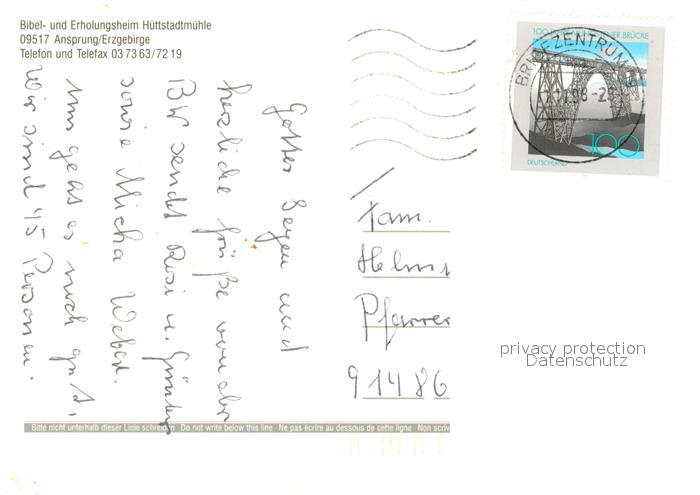 Bibel- und Erholungsheim Hüttstadtmühle
09517 Ansprung/Erzgebirge
Telefon und Telefax 03 73 63/72 19
Gottes Segen und
herzliche Grüße von der
BW sendet Rosi u. Günter
sowie Micha Weber.
Uns geht es noch gut,
Wir sind 45 Personen.
100 BRÜCKE
BRIEFZENTRUM
98-2
100
DEUTSCHLAND
Fam.
Helm
Pfarrer
91486
privacy protection
Datenschutz
Bitte nicht unterhalb dieser Linie schreiben Do not write below this line · Ne pas écrire au dessous de cette ligne Non scriv